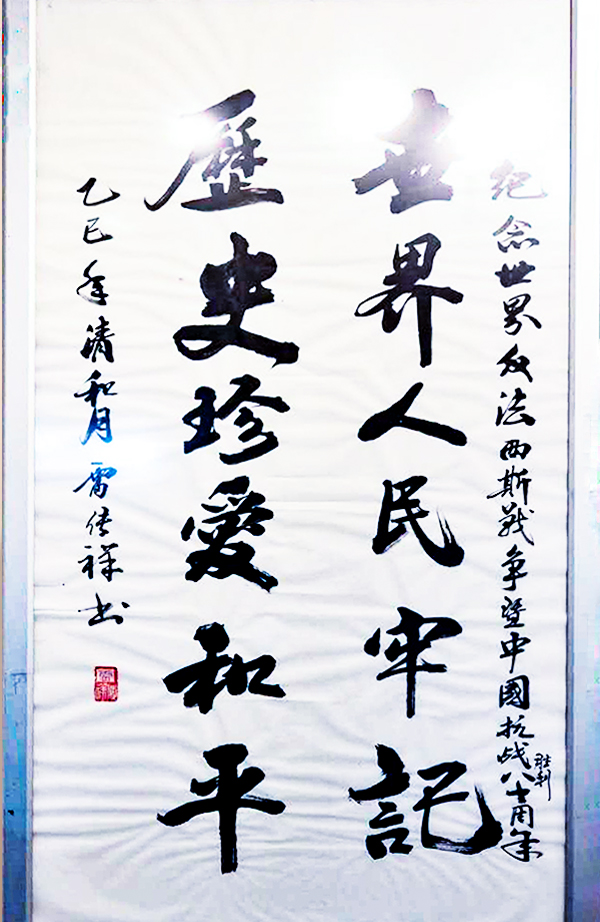 纪念世界反法西斯战争暨中國抗战胜利八十周年
世界人民牢記
歷史珍愛和平
乙巳年清和月雷传祥书